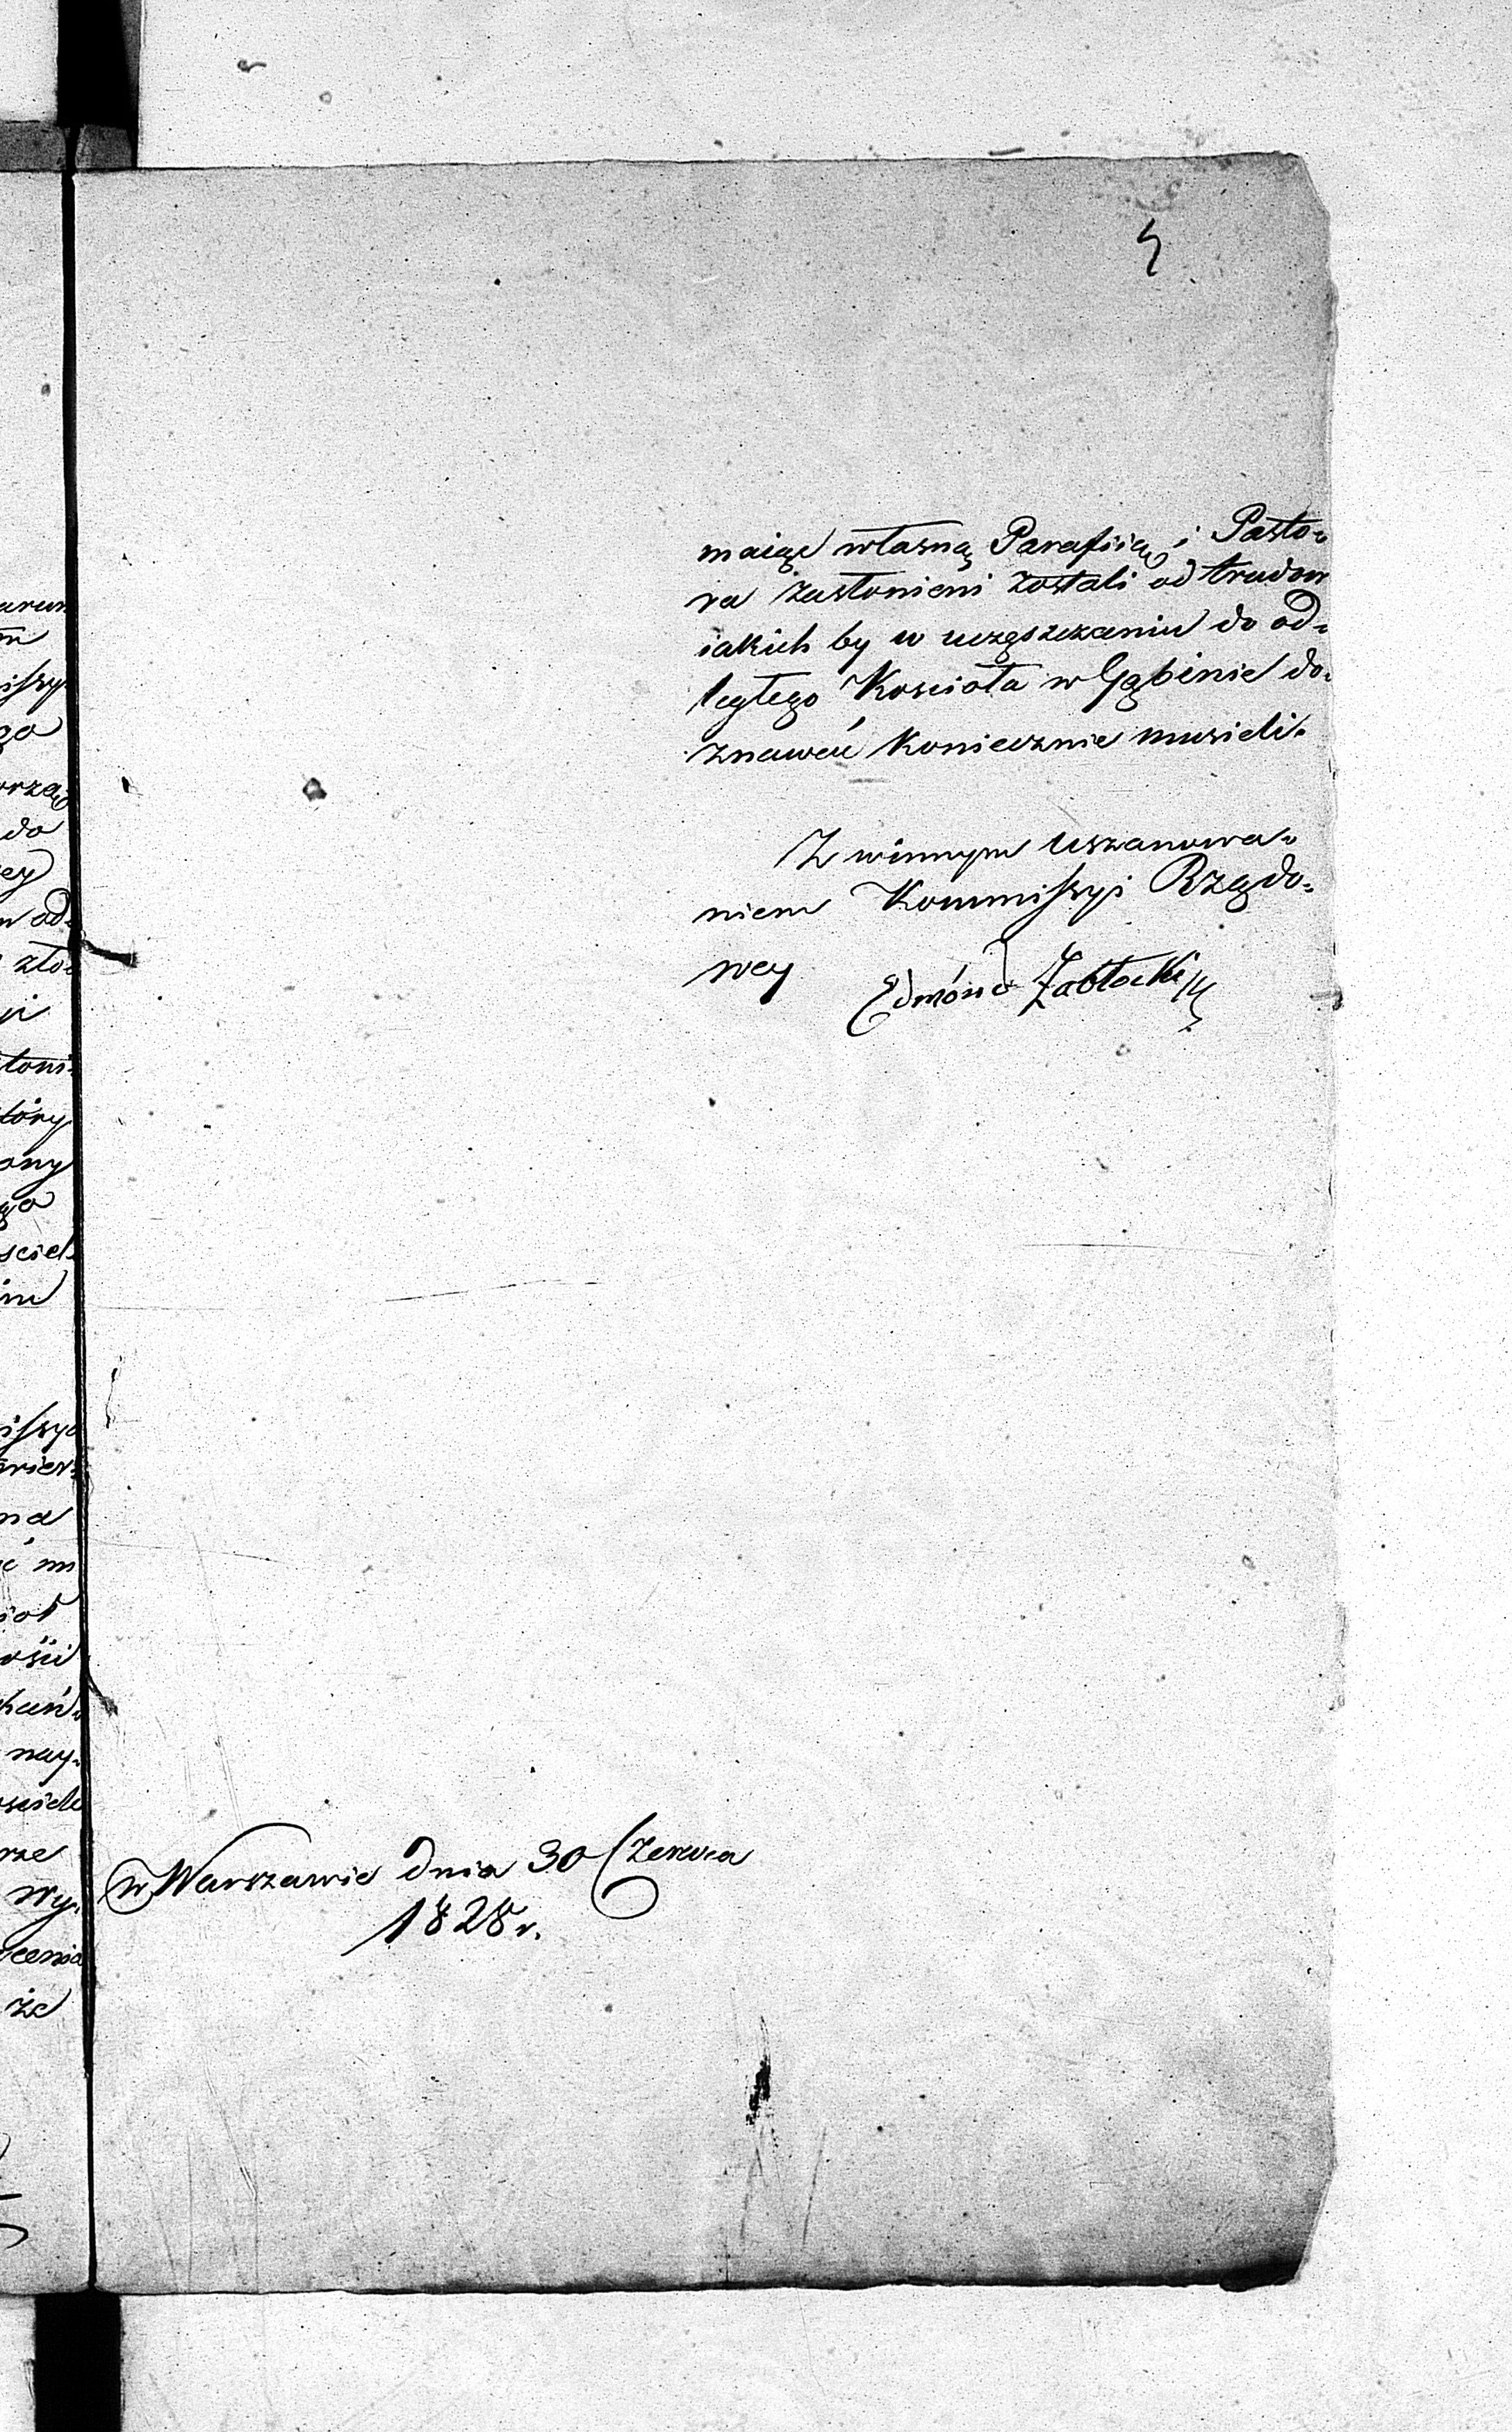 5
maiąc własną Parafiią i Pasto=
ra zasłonieni zostali od trudów
iakich by w uczęszczaniu do od=
ległego Kościoła w Gąbinie do=
znawać koniecznie musieli.
Z winnym Uszanowa=
niem Kommissyi Rządo=
wey
Edmónd Zabłocki
w Warszawie dnia 30 Czerwca
1828 r.